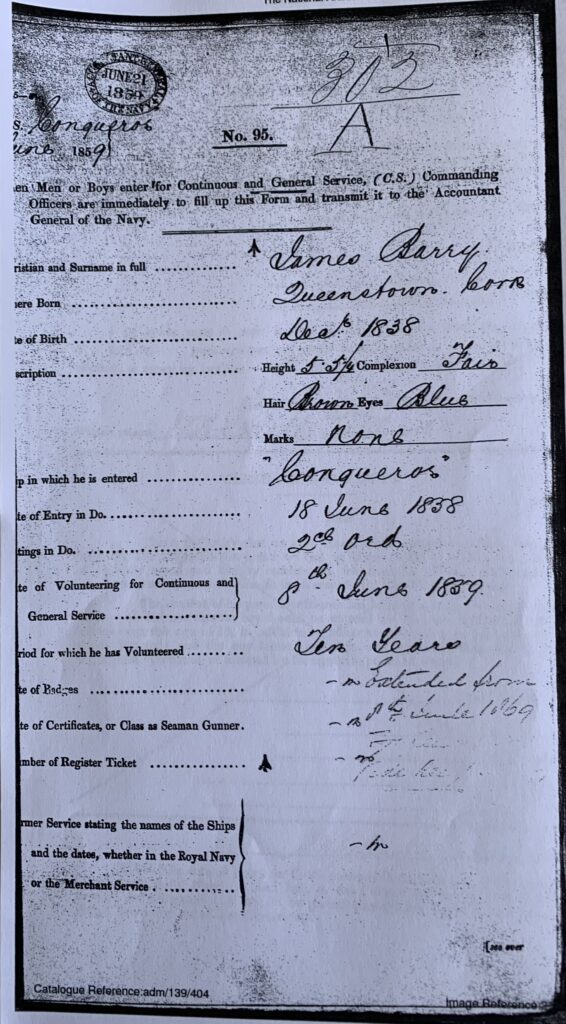 JUNE 21
1859
THE NAVY
302
A
Conqueror
No. 95.
June 1859
en Men or Boys enter for Continuous and General Service, (C.S.) Commanding
Officers are immediately to fill up this Form and transmit it to the Accountant
General of the Navy.
ristian and Surname in full .............. James Barry.
ere Born .............. Queenstown. Cork
te of Birth .............. Decr 1838
scription .............. Height 5 5¼ Complexion Fair
Hair Brown Eyes Blue
Marks None
ip in which he is entered .............. "Conqueror"
te of Entry in Do. .............. 18 June 1858
tings in Do. .............. 2cl Ord
te of Volunteering for Continuous and
General Service .............. 8th June 1859.
riod for which he has Volunteered ........ Ten Years
te of Badges .............. Extended from
te of Certificates, or Class as Seaman Gunner. 8th June 1869
mber of Register Ticket ..............
rmer Service stating the names of the Ships
and the dates, whether in the Royal Navy
or the Merchant Service. ............
[see over
Catalogue Reference:adm/139/404
Image Reference